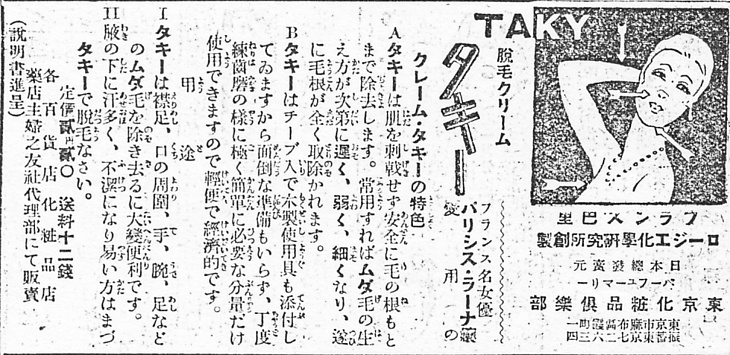 TAKY
フランス巴里
ロージエ化學研究所創製
日本總發賣元
パーフユーマリー
東京化粧品倶樂部
東京市麻布區霞町一
振替東京七二六三四
脱毛クリーム
タキー
フランス名女優
パリシス・ラーナ孃
愛用の
クレーム・タキーの特色
Aタキーは肌を刺戟せず安全に毛の根もと
まで除去します。常用すればムダ毛の生
え方が次第に遲く、弱く、細くなり、遂
に毛根が全く取除かれます。
Bタキーはチーブ入で木製使用具も添付し
てゐますから面倒な準備もいらず、丁度
練齒磨の樣に極く簡單に必要な分量だけ
使用できますので輕便で經濟的です。
用途
Iタキーは襟足、口の周圍、手、腕、足など
のムダ毛を除き去るに大變便利です。
II腋の下に汗多く、不潔になり易い方はまづ
タキーで脱毛なさい。
定價貳、貳〇 送料十二錢
各百貨店化粧品店
藥店主婦之友社代理部にて販賣
(說明書進呈)